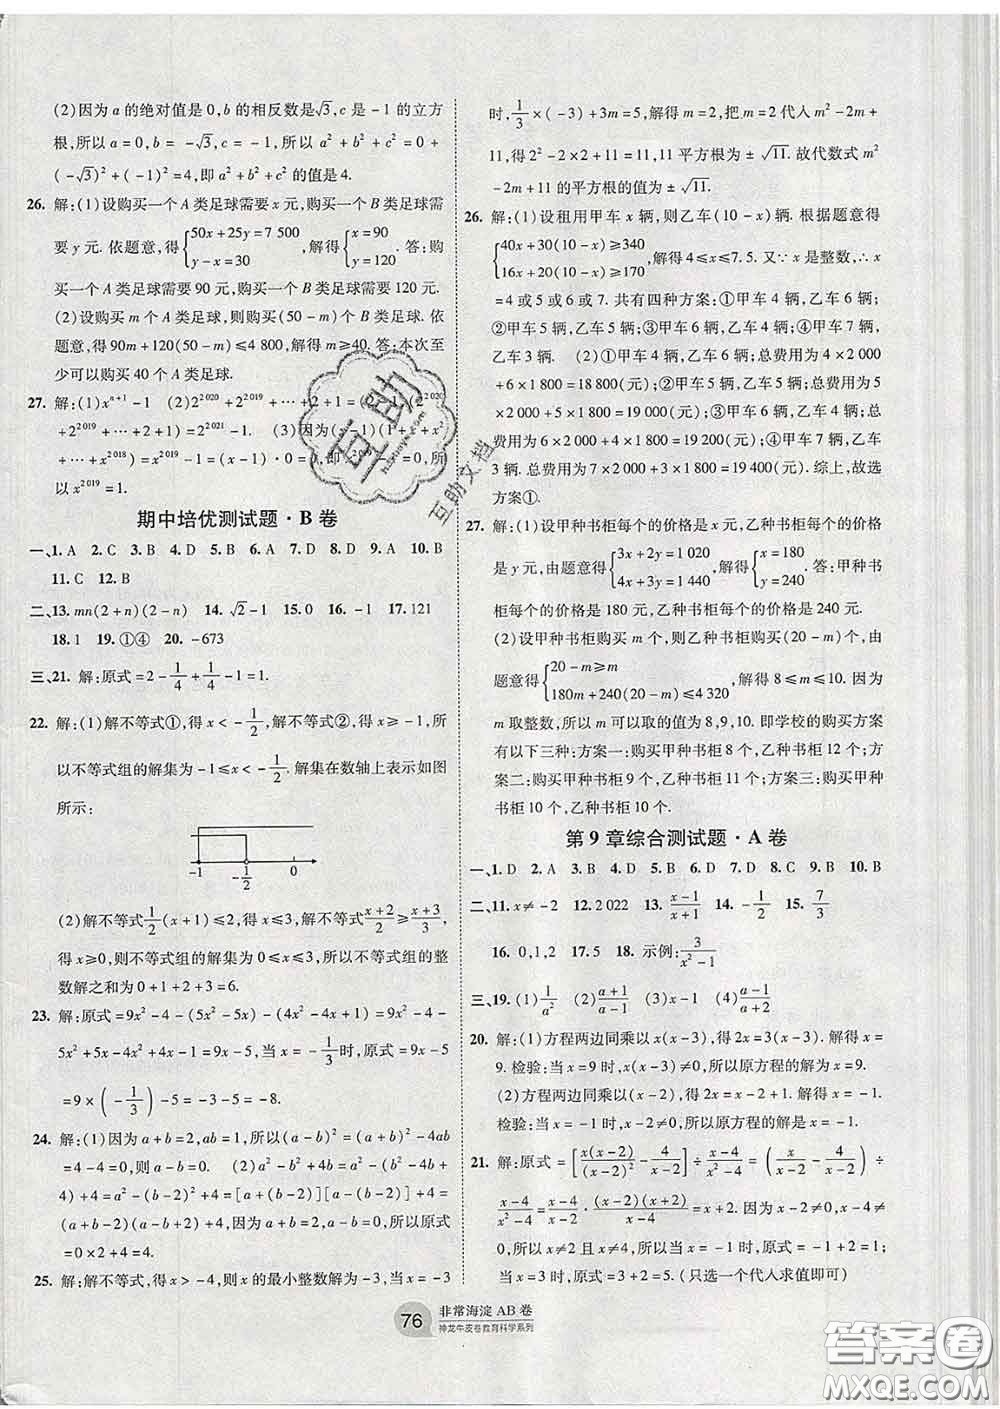 (2)因为a的绝对值是0,b的相反数是√3,c是-1的立方
根,所以a=0,b=-√3,c=-1,所以a²+b²+c²=0+
(-√3)²+(-1)²=4,即a²+b²+c²的值是4.
26. 解:(1)设购买一个A类足球需要x元,购买一个B类足球需
要y元. 依题意,得{50x+25y=7 500 y-x=30,解得{x=90 y=120. 答:购
买一个A类足球需要90元,购买一个B类足球需要120元.
(2)设购买m个A类足球,则购买(50-m)个B类足球. 依
题意,得90m+120(50-m)≤4 800,解得m≥40. 答:本次至
少可以购买40个A类足球.
27. 解:(1)xⁿ⁺¹-1 (2)2²⁰²⁰+2²⁰¹⁹+…+2+1=
+2²⁰¹⁹+…+2+1)=2²⁰²¹-1. (3)因为(x-1)(1+x+x²
+…+x²⁰¹⁸)=x²⁰¹⁹-1=(x-1)·0=0,即x²⁰¹⁹-1=0,所
以x²⁰¹⁹=1.
期中培优测试题·B卷
一、1. A 2. C 3. B 4. D 5. B 6. A 7. D 8. D 9. A 10. B
11. C 12. B
二、13. mn(2+n)(2-n) 14. √2-1 15. 0 16. -1 17. 121
18. 1 19. ①④ 20. -673
三、21. 解:原式=2-1/4+1/4-1=1.
22. 解:(1)解不等式①,得x<-1/2,解不等式②,得x≥-1,所
以不等式组的解集为-1≤x<-1/2. 解集在数轴上表示如图
所示:
-1 -1/2 0
(2)解不等式1/2(x+1)≤2,得x≤3,解不等式(x+2)/2≥(x+3)/3,
得x≥0,所以不等式组的解集为0≤x≤3,所以不等式组的整
数解之和为0+1+2+3=6.
23. 解:原式=9x²-4-(5x²-5x)-(4x²-4x+1)=9x²-4-
5x²+5x-4x²+4x-1=9x-5,当x=-1/3时,原式=9x-5
=9×(-1/3)-5=-3-5=-8.
24. 解:(1)因为a+b=2,ab=1,所以(a-b)²=(a+b)²-4ab
=4-4=0,则a-b=0. (2)a²-b²+4b=a²-(b²-4b+
4)+4=a²-(b-2)²+4=[a+(b-2)][a-(b-2)]+4=
(a+b-2)(a-b+2)+4,因为a+b=2,a-b=0,所以原式
=0×2+4=4.
25. 解:解不等式,得x>-4,则x的最小整数解为-3,当x=-3
时,1/3×(-3)+3m=5,解得m=2,把m=2代入m²-2m+
11,得2²-2×2+11=11,11平方根为±√11. 故代数式m²
-2m+11的平方根的值为±√11.
26. 解:(1)设租用甲车x辆,则乙车(10-x)辆. 根据题意得
{40x+30(10-x)≥340 16x+20(10-x)≥170,解得4≤x≤7. 5. 又∵x是整数,∴x
=4或5或6或7. 共有四种方案:①甲车4辆,乙车6辆;
②甲车5辆,乙车5辆;③甲车6辆,乙车4辆;④甲车7辆,
乙车3辆. (2)①甲车4辆,乙车6辆;总费用为4×2 000
+6×1 800=18 800(元);②甲车5辆,乙车5辆;总费用为
5×2 000+5×1 800=19 000(元);③甲车6辆,乙车4辆;总
费用为6×2 000+4×1 800=19 200(元);④甲车7辆,乙车
3辆. 总费用为7×2 000+3×1 800=19 400(元). 综上,故选
方案①.
27. 解:(1)设甲种书柜每个的价格是x元,乙种书柜每个的价格
是y元,由题意得{3x+2y=1 020 4x+3y=1 440,解得{x=180 y=240. 答:甲种书
柜每个的价格是180元,乙种书柜每个的价格是240元.
(2)设甲种书柜购买m个,则乙种书柜购买(20-m)个,由
题意得{20-m≥m 180m+240(20-m)≤4 320,解得8≤m≤10. 因为
m取整数,所以m可以取的值为8,9,10. 即学校的购买方案
有以下三种:方案一:购买甲种书柜8个,乙种书柜12个;方
案二:购买甲种书柜9个,乙种书柜11个;方案三:购买甲种
书柜10个,乙种书柜10个.
第9章综合测试题·A卷
一、1. D 2. A 3. B 4. D 5. D 6. D 7. D 8. C 9. B 10. B
二、11. x≠-2 12. 2 022 13. (x-1)/(x+1) 14. -1/2 15. 7/3
16. 0,1,2 17. 5 18. 示例:3/(x²-1)
三、19. (1)1/a² (2)(a+1)/(a-1) (3)(a-1)/(a+2)
20. 解:(1)方程两边同乘以x(x-3),得2x=3(x-3),解得x=
9. 检验:当x=9时,x(x-3)≠0,所以原方程的解为x=9.
(2)方程两边同乘以(x-2),得2x=x-2+1. 解得x=-1.
检验:当x=-1时,x-2≠0,所以原方程的解为x=-1.
21. 解:原式=[x(x-2)/(x-2)²-4/(x-2)]÷(x-4)/(x²-4)=(x/(x-2)-4/(x-2))÷
(x-4)/(x²-4)=(x-4)/(x-2)·(x-2)(x+2)/(x-4)=x+2,因为x-2≠0,x-4≠0,
所以x≠2且x≠4,所以当x=1时,原式=1+2=3. 或
当x=3时,原式=3+2=5. (只选一个代入求值即可)
76 非常海淀AB卷
神龙牛皮卷教育科学系列
互助
互助文档
答案圈
MXQE.COM